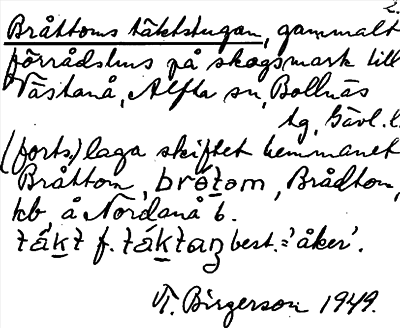 2.
Bråttoms täktstugan, gammalt
förrådshus på skogsmark till
Västanå, Alfta sn, Bollnäs
tg, Gävl. l.
(forts.) laga skiftet hemmanet
Bråttom, brótom, Brådtom,
kb å Nordanå 6.
tä́kt f. tä́ktaŋ best. = 'åker'.
VT. Birgerson 1949.